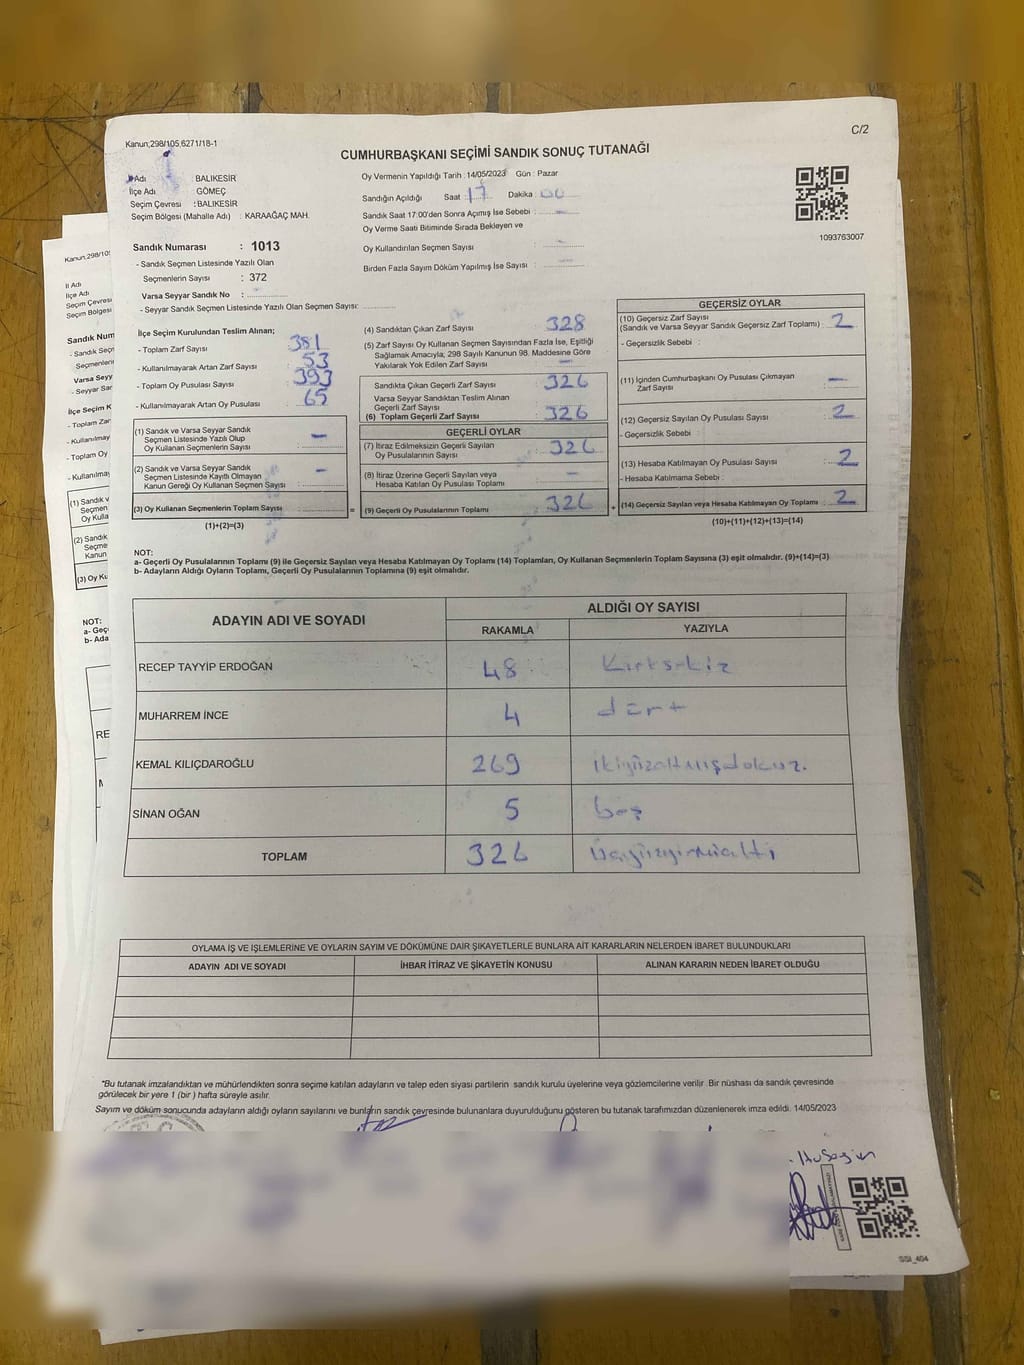 C/2
Kanun;298/105,6271/18-1
CUMHURBAŞKANI SEÇİMİ SANDIK SONUÇ TUTANAĞI
Adı : BALIKESİR
İlçe Adı GÖMEÇ
Seçim Çevresi : BALIKESİR
Seçim Bölgesi (Mahalle Adı) : KARAAĞAÇ MAH.
Oy Vermenin Yapıldığı Tarih : 14/05/2023 Gün : Pazar
Sandığın Açıldığı Saat : 17 Dakika : 00
Sandık Saat 17:00'den Sonra Açımış İse Sebebi : –
Oy Verme Saati Bitiminde Sırada Bekleyen ve
Oy Kullandırılan Seçmen Sayısı : –
Birden Fazla Sayım Döküm Yapılmış İse Sayısı : –
1093763007
Sandık Numarası : 1013
- Sandık Seçmen Listesinde Yazılı Olan
Seçmenlerin Sayısı : 372
Varsa Seyyar Sandık No :
- Seyyar Sandık Seçmen Listesinde Yazılı Olan Seçmen Sayısı:
İlçe Seçim Kurulundan Teslim Alınan;
- Toplam Zarf Sayısı 381
- Kullanılmayarak Artan Zarf Sayısı 53
- Toplam Oy Pusulası Sayısı 393
- Kullanılmayarak Artan Oy Pusulası 65
(1) Sandık ve Varsa Seyyar Sandık
Seçmen Listesinde Yazılı Olup
Oy Kullanan Seçmenlerin Sayısı : –
(2) Sandık ve Varsa Seyyar Sandık
Seçmen Listesinde Kayıtlı Olmayan
Kanun Gereği Oy Kullanan Seçmen Sayısı : –
(3) Oy Kullanan Seçmenlerin Toplam Sayısı : =
(1)+(2)=(3)
(4) Sandıktan Çıkan Zarf Sayısı 328
(5) Zarf Sayısı Oy Kullanan Seçmen Sayısından Fazla İse, Eşitliği
Sağlamak Amacıyla; 298 Sayılı Kanunun 98. Maddesine Göre
Yakılarak Yok Edilen Zarf Sayısı –
Sandıkta Çıkan Geçerli Zarf Sayısı 326
Varsa Seyyar Sandıktan Teslim Alınan
Geçerli Zarf Sayısı
(6) Toplam Geçerli Zarf Sayısı 326
GEÇERLİ OYLAR
(7) İtiraz Edilmeksizin Geçerli Sayılan
Oy Pusulalarının Sayısı : 326
(8) İtiraz Üzerine Geçerli Sayılan veya
Hesaba Katılan Oy Pusulası Toplamı : –
(9) Geçerli Oy Pusulalarının Toplamı : 326 +
GEÇERSİZ OYLAR
(10) Geçersiz Zarf Sayısı
(Sandık ve Varsa Seyyar Sandık Geçersiz Zarf Toplamı) : 2
- Geçersizlik Sebebi :
(11) İçinden Cumhurbaşkanı Oy Pusulası Çıkmayan
Zarf Sayısı : –
(12) Geçersiz Sayılan Oy Pusulası Sayısı : 2
- Geçersizlik Sebebi :
(13) Hesaba Katılmayan Oy Pusulası Sayısı : 2
- Hesaba Katılmama Sebebi :
(14) Geçersiz Sayılan veya Hesaba Katılmayan Oy Toplamı : 2
(10)+(11)+(12)+(13)=(14)
NOT:
a- Geçerli Oy Pusulalarının Toplamı (9) ile Geçersiz Sayılan veya Hesaba Katılmayan Oy Toplamı (14) Toplamları, Oy Kullanan Seçmenlerin Toplam Sayısına (3) eşit olmalıdır. (9)+(14)=(3)
b- Adayların Aldığı Oyların Toplamı, Geçerli Oy Pusulalarının Toplamına (9) eşit olmalıdır.
ADAYIN ADI VE SOYADI
ALDIĞI OY SAYISI
RAKAMLA YAZIYLA
RECEP TAYYİP ERDOĞAN 48 Kırksekiz
MUHARREM İNCE 4 dört
KEMAL KILIÇDAROĞLU 269 ikiyüzaltmışdokuz.
SİNAN OĞAN 5 beş
TOPLAM 326 üçyüzyirmialtı
OYLAMA İŞ VE İŞLEMLERİNE VE OYLARIN SAYIM VE DÖKÜMÜNE DAİR ŞİKAYETLERLE BUNLARA AİT KARARLARIN NELERDEN İBARET BULUNDUKLARI
ADAYIN ADI VE SOYADI İHBAR İTİRAZ VE ŞİKAYETİN KONUSU ALINAN KARARIN NEDEN İBARET OLDUĞU
*Bu tutanak imzalandıktan ve mühürlendikten sonra seçime katılan adayların ve talep eden siyasi partilerin sandık kurulu üyelerine veya gözlemcilerine verilir. Bir nüshası da sandık çevresinde
görülecek bir yere 1 (bir) hafta süreyle asılır.
Sayım ve döküm sonucunda adayların aldığı oyların sayılarını ve bunların sandık çevresinde bulunanlara duyurulduğunu gösteren bu tutanak tarafımızdan düzenlenerek imza edildi. 14/05/2023